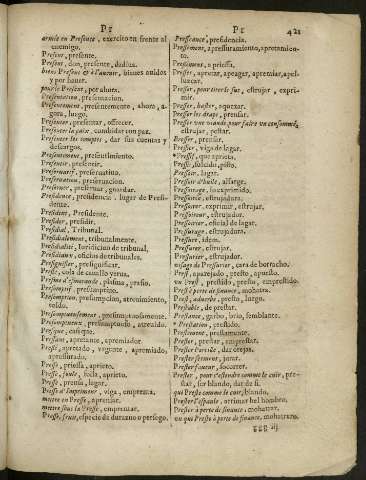 P r
armée en Presence, exercito en frente al
enemigo.
Present, presente.
Present, don, presente, dadiva.
biens Presens & à l'auenir, bienes auidos
y por hauer.
pour le Present, por ahora.
Presentation, presentacion.
Presentement, presentemente, ahora, a-
gora, luego.
Presenter, presentar, offrecer.
Presenter la paix, combidar con paz.
Presenter les comptes, dar sus cuentas y
descargos.
Presentement, presentimiento.
Presentir, presentir.
Preseruatif, preseruatiuo.
Preseruation, preseruacion.
Preseruer, preseruar, guardar.
Presidence, presidencia, lugar de Presi-
dente.
President, Presidente.
Presider, presidir.
Presidial, Tribunal.
Presidialement, tribunalmente.
Presidialité, Iuridicion de tribunal.
Presidiaux, oficios de tribunales.
Presignifier, presignificar.
cola de cauallo yerua.
Presme d'esmeraude, plasma, prasio.
Presomptif, presumptiuo.
Presomption, presumpcion, atreuimiento,
toldo.
Presomptueusement, presumptuosamente.
Presomptueux, presumptuoso, atreuido.
Presque, casi.
Pressant, apretante, apremiador.
Pressé, apretado, vagante, apremiado,
apressurado.
Presse, priessa, aprieto.
Presse, foule, aprieto.
Presse, prensa, lagar.
Presse d'Imprimeur, viga, emprenta.
mettre en Presse, aprensar.
mettre sous la Presse, emprentar.
Presse, fruit, especie de durazno o persego.
P r 421
Pressement, apressuramiento, apretamien-
to.
Pressément, a priessa.
Presser, apretar, apeagar, apremiar, apel-
Presser, pour tirer le suc, estrujar, expri-
mir.
Presser, haster, aquexar.
Presser les draps, prensar.
Presser vne viande pour faire vn consommé,
estrujar, pestar.
Presser, prensar.
Pressier, viga de lagar.
Pressif, que aprieta.
Pressoir, lagar.
Pressoir d'huile, alfarge.
Pressurage, lo exprimido.
Pressoirée, estrujadura.
Pressoirer, exprimir, estrujar.
Pressoireur, estrujador.
Pressoirier, oficial de lagar.
Pressurage, estrujadura.
Pressure, idem.
Pressurer, estrujar.
Pressurier, estrujador.
visage de Pressurier, cara de borracho.
Prest, aparejado, presto, apuesto.
vn Prest, prestido, presto, emprestido.
Prest à perte de finance, mohatra.
Prest, aduerbe, presto, luego.
Prestable, de prestar.
Prestance, garbo, brio, semblante.
Prestation, prestido.
Prestement, prestamente.
Prester, prestar, emprestar.
Prester l'oreille, dar orejas.
Prester serment, jurar.
Prester faueur, socorrer.
Prester, pour s'estendre comme le cuir, pre-
star, ser blando, dar de si.
qui Preste comme le cuir, blando.
Prester l'espaule, arrimar bel hombro.
Prester à perte de finance, mohatrar.
vn qui Preste à perte de finance, mohatrero.